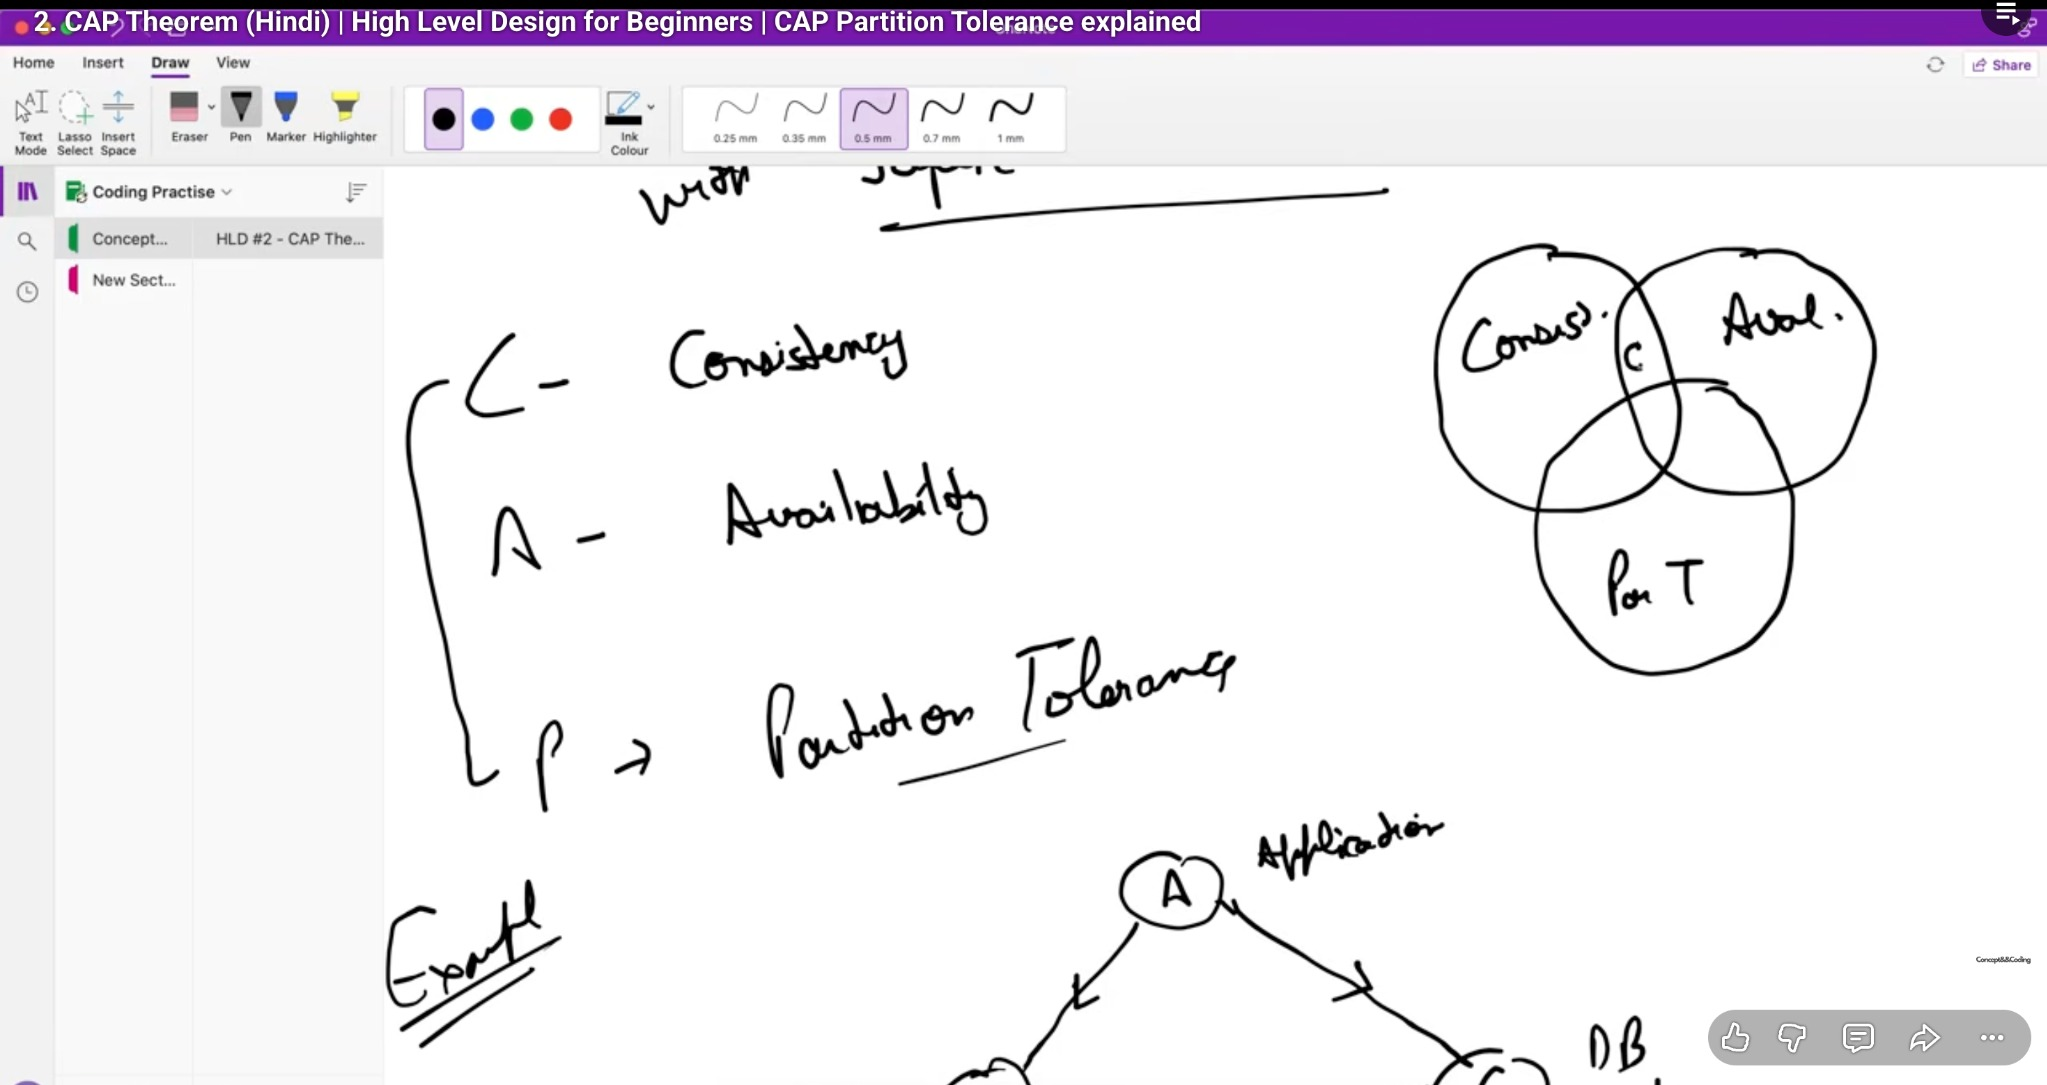 2. CAP Theorem (Hindi) | High Level Design for Beginners | CAP Partition Tolerance explained
Home Insert Draw View
Share
Text Mode
Lasso Select
Insert Space
Eraser
Pen
Marker
Highlighter
Ink Colour
0.25 mm
0.35 mm
0.5 mm
0.7 mm
1 mm
Coding Practise
Concept... HLD #2 - CAP The...
New Sect...
with
C - Consistency
A - Availability
P → Partition Tolerance
Consis. C Aval.
Par T
Exampl
A Application
DB
Concept&&Coding